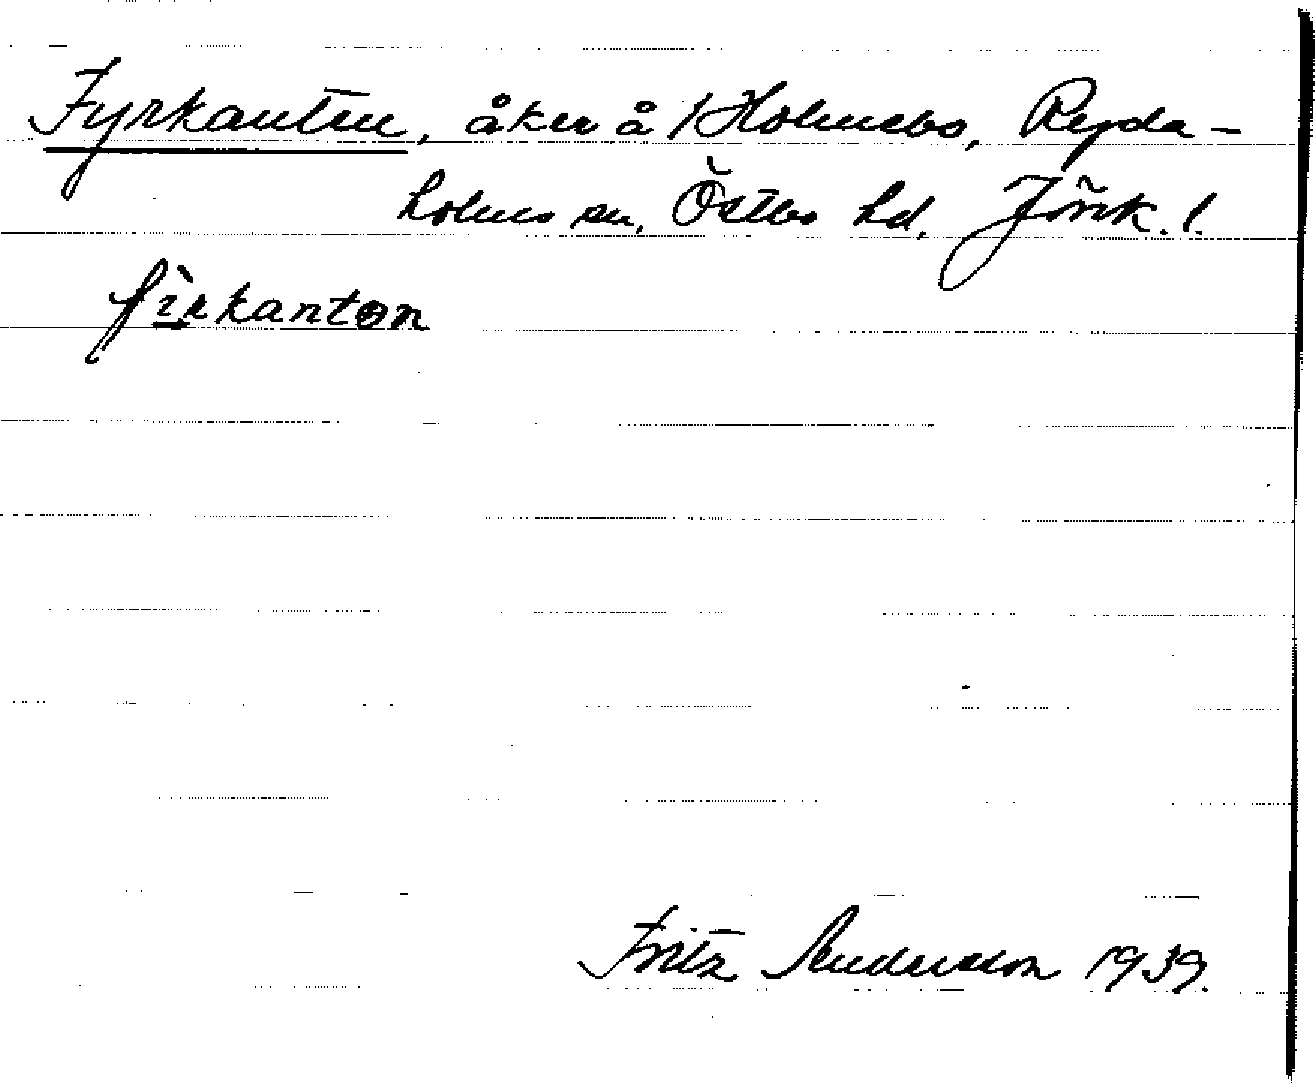 Fyrkanten, åker å Holmsbo, Ryda-
holms sn, Östbo hd, Jönk. l.
fìrkanton
Fritz Andersson 1939.